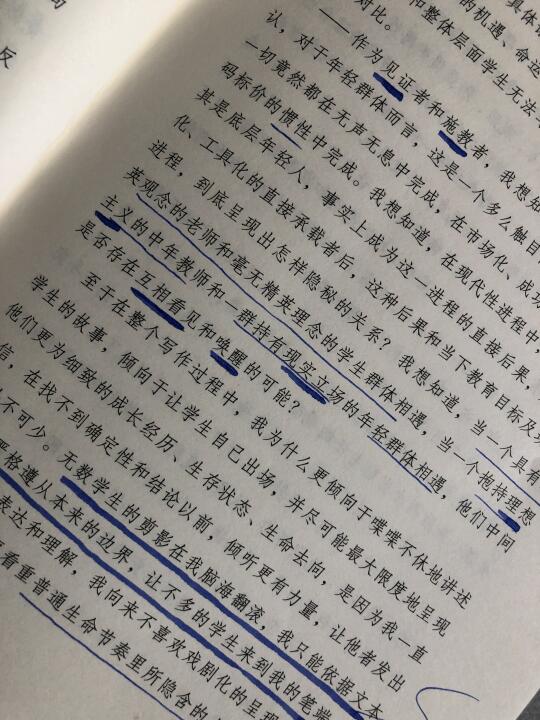 反
具体
的机遇、命运
和整体层面学生无法
对比。
——作为见证者和施教者，我想知
认，对于年轻群体而言，这是一个多么触目
一切竟然都在无声无息中完成，在市场化、成功
码标价的惯性中完成。我想知道，在现代性进程中，
其是底层年轻人，事实上成为这一进程的直接后果，
化、工具化的直接承载者后，这种后果和当下教育目标及
进程，到底呈现出怎样隐秘的关系？我想知道，当一个具有
英观念的老师和毫无精英理念的学生群体相遇，当一个抱持理想
主义的中年教师和一群持有现实立场的年轻群体相遇，他们中间
是否存在互相看见和唤醒的可能？
至于在整个写作过程中，我为什么更倾向于喋喋不休地讲述
学生的故事，倾向于让学生自己出场，并尽可能最大限度地呈现
他们更为细致的成长经历、生存状态、生命去向，是因为我一直
信，在找不到确定性和结论以前，倾听更有力量，让他者发出
不可少。无数学生的剪影在我脑海翻滚，我只能依据文本
严格遵从本来的边界，让不多的学生来到我的笔端
表达和理解，我向来不喜欢戏剧化的呈现
看重普通生命节奏里所隐含的